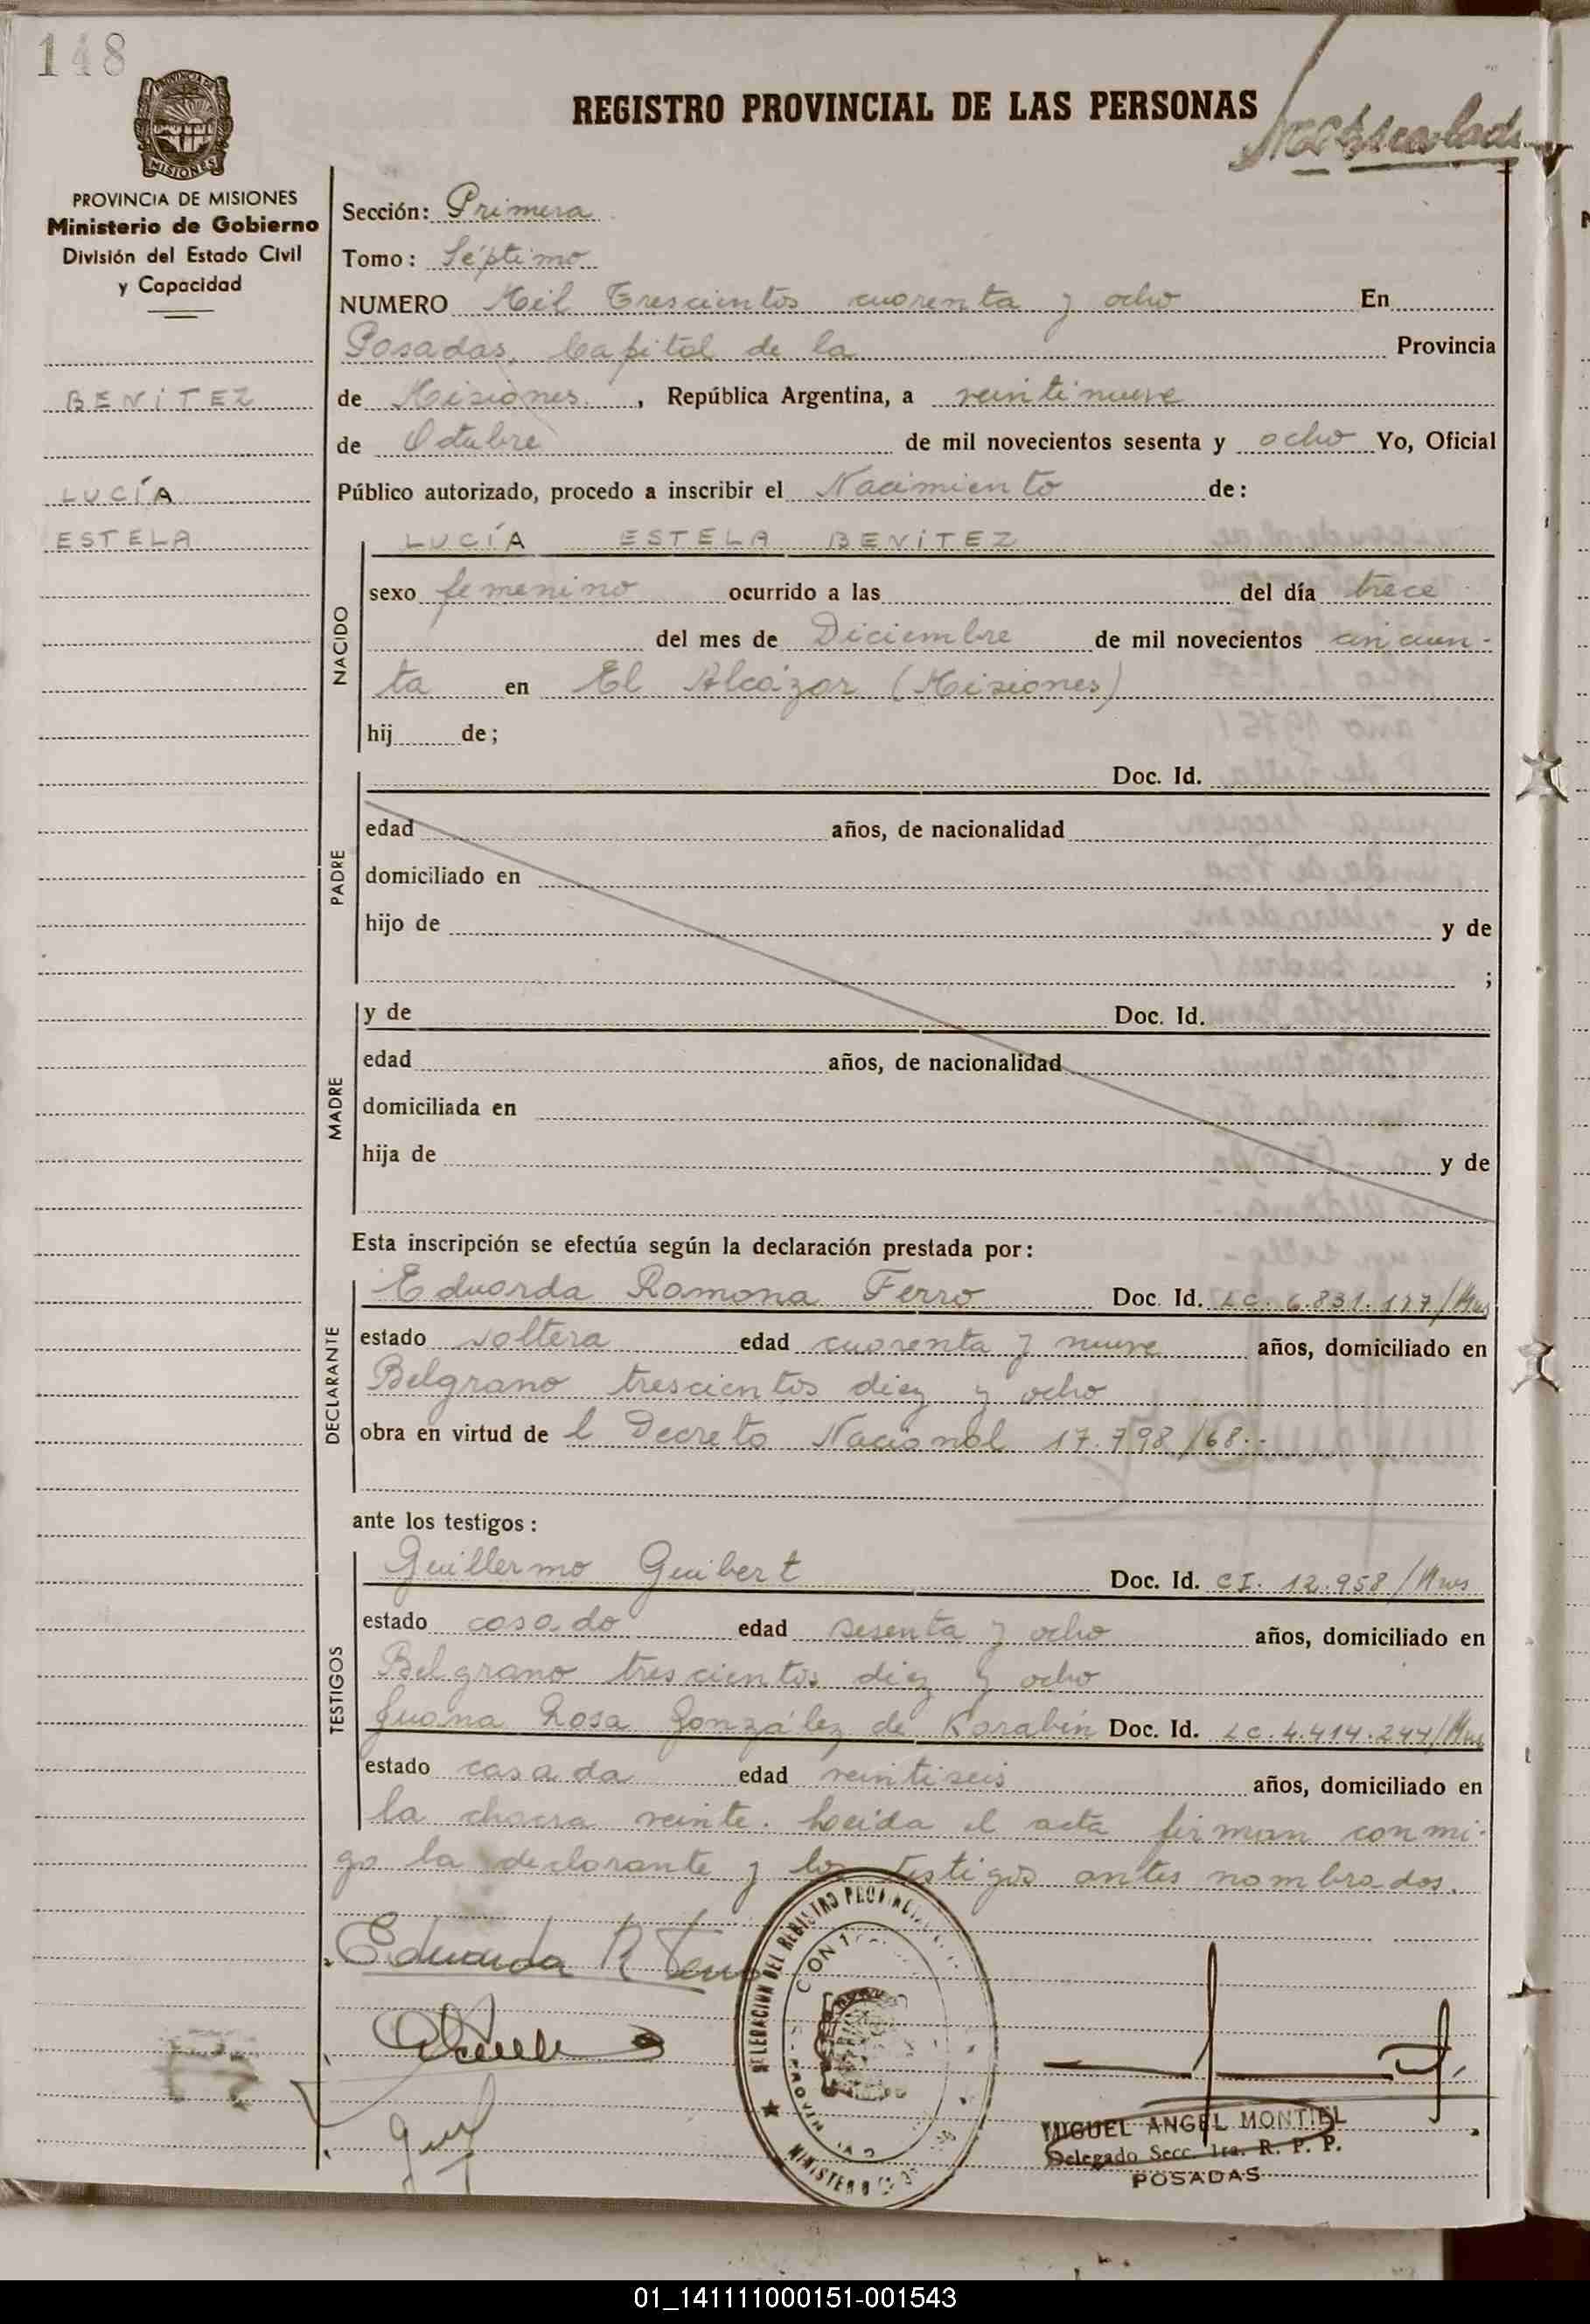 148
REGISTRO PROVINCIAL DE LAS PERSONAS
PROVINCIA DE MISIONES
Ministerio de Gobierno
División del Estado Civil
y Capacidad
BENÍTEZ
LUCÍA
ESTELA
Sección: Primera
Tomo: Séptimo
NUMERO Mil Trescientos cuarenta y ocho En
Posadas, Capital de la Provincia
de Misiones, República Argentina, a veintinueve
de Octubre de mil novecientos sesenta y ocho Yo, Oficial
Público autorizado, procedo a inscribir el Nacimiento de:
NACIDO
LUCÍA ESTELA BENÍTEZ
sexo femenino ocurrido a las del día trece
del mes de Diciembre de mil novecientos cincuen-
ta en El Alcázar (Misiones)
hij de;
PADRE
Doc. Id.
edad años, de nacionalidad
domiciliado en
hijo de y de
;
MADRE
y de Doc. Id.
edad años, de nacionalidad
domiciliada en
hija de y de
Esta inscripción se efectúa según la declaración prestada por:
DECLARANTE
Eduarda Ramona Ferro Doc. Id. LC. 6.831.127/Mns
estado soltera edad cuarenta y nueve años, domiciliado en
Belgrano trescientos diez y ocho
obra en virtud de l Decreto Nacional 17.798/68.-
ante los testigos:
TESTIGOS
Guillermo Guibert Doc. Id. CI. 12.958/Mns
estado casado edad sesenta y ocho años, domiciliado en
Belgrano trescientos diez y ocho
Juana Rosa González de Karabin Doc. Id. LC. 4.414.244/Mns
estado casada edad veintiseis años, domiciliado en
la chacra veinte. Leída el acta firman conmi-
go la declarante y los testigos antes nombrados.
Eduarda R Ferro
DELEGACION DEL REGISTRO PROVINCIAL
MINISTERIO
MIGUEL ANGEL MONTIEL
Delegado Secc. 1ra. R. P. P.
POSADAS
01_141111000151-001543